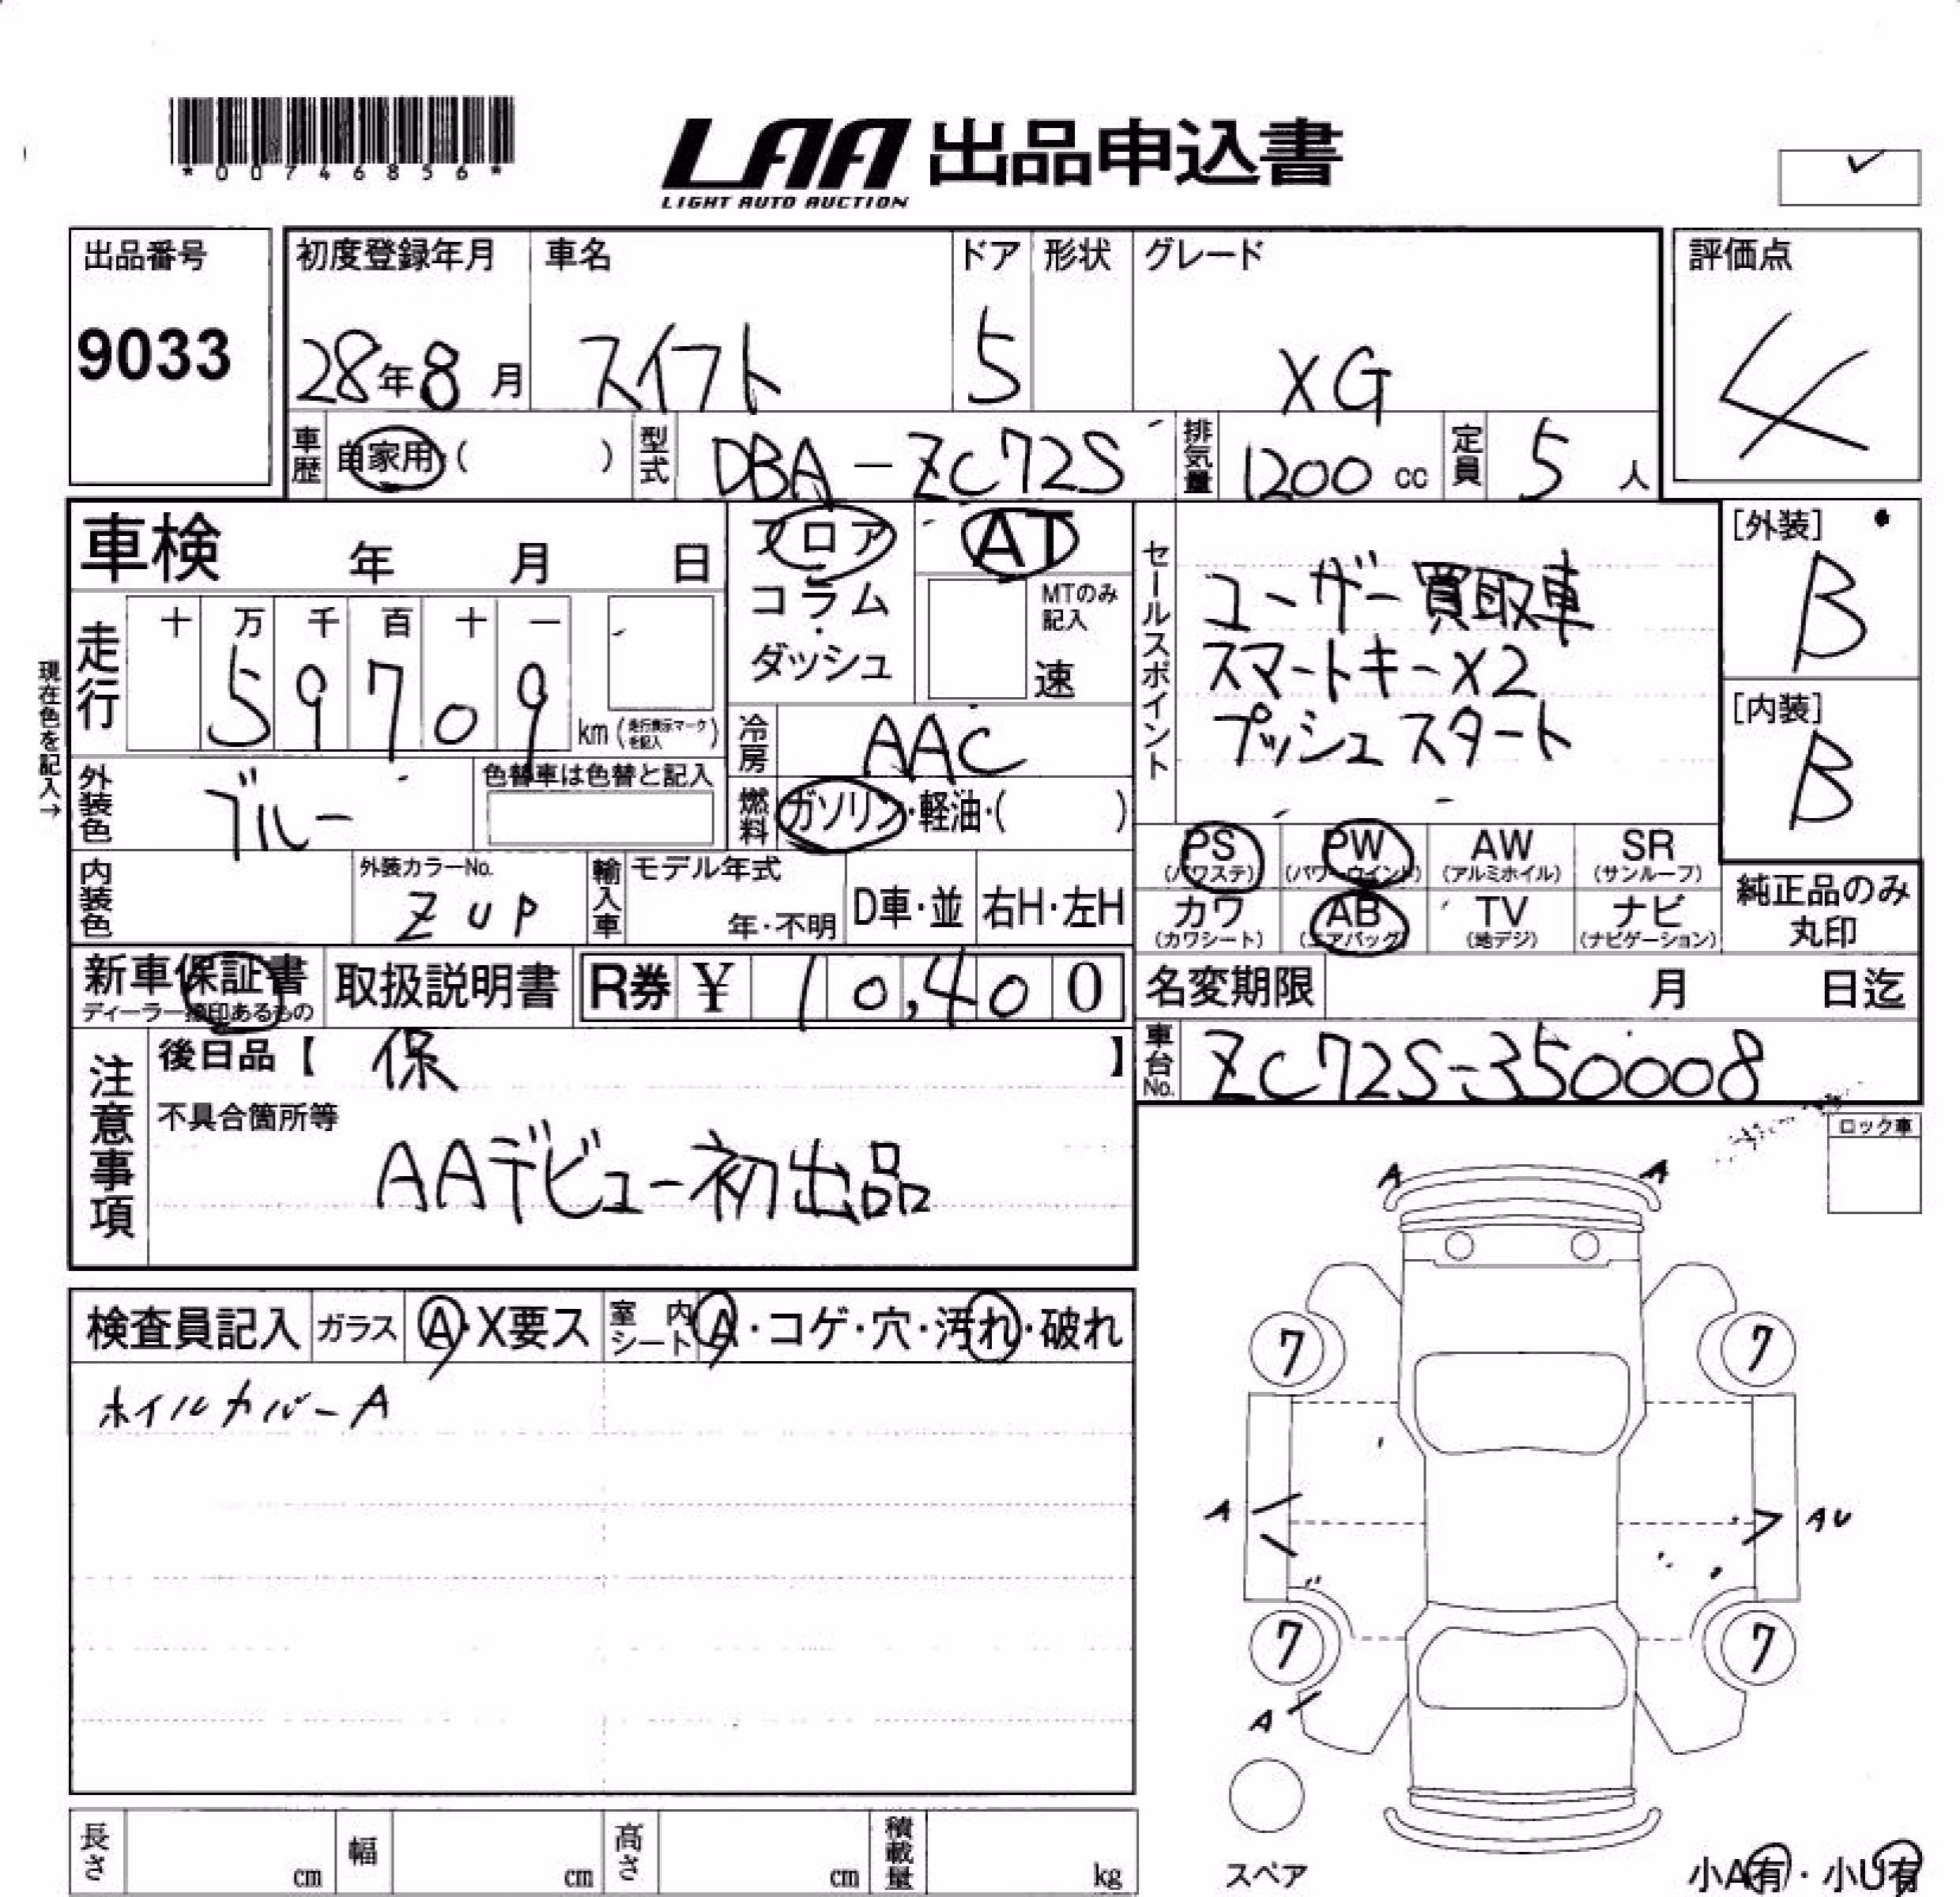 *00746856*
LAA 出品申込書
LIGHT AUTO AUCTION
出品番号
9033
初度登録年月
28年8月
車名
スイフト
ドア
5
形状
グレード
XG
評価点
4
車歴 自家用・( )
型式 DBA-ZC72S
排気量 1200 cc
定員 5 人
車検 年 月 日
フロア・コラム・ダッシュ
AT
MTのみ記入
速
現在色を記入→
走行 十 万 千 百 十 一
59709 km (走行表示マークを記入)
冷房 AAC
外装色 ブルー
色替車は色替と記入
燃料 ガソリン・軽油・( )
内装色
外装カラーNo.
ZUP
輸入車 モデル年式
年・不明
D車・並 右H・左H
セールスポイント
ユーザー買取車
スマートキーX2
プッシュスタート
[外装]
B
[内装]
B
PS (パワステ) PW (パワーウインド) AW (アルミホイル) SR (サンルーフ)
カワ (カワシート) AB (エアバッグ) TV (地デジ) ナビ (ナビゲーション)
純正品のみ丸印
新車保証書
ディーラー捺印あるもの
取扱説明書
R券 ¥ 10,400
名変期限 月 日迄
車台No. ZC72S-350008
注意事項
後日品【 保 】
不具合箇所等
AAデビュー初出品
ロック車
検査員記入 ガラス A・X要ス 室内シート A・コゲ・穴・汚れ・破れ
ホイルカバーA
A A
7 7
A AU
7 7
A
スペア
小A有・小U有
長さ cm 幅 cm 高さ cm 積載量 kg